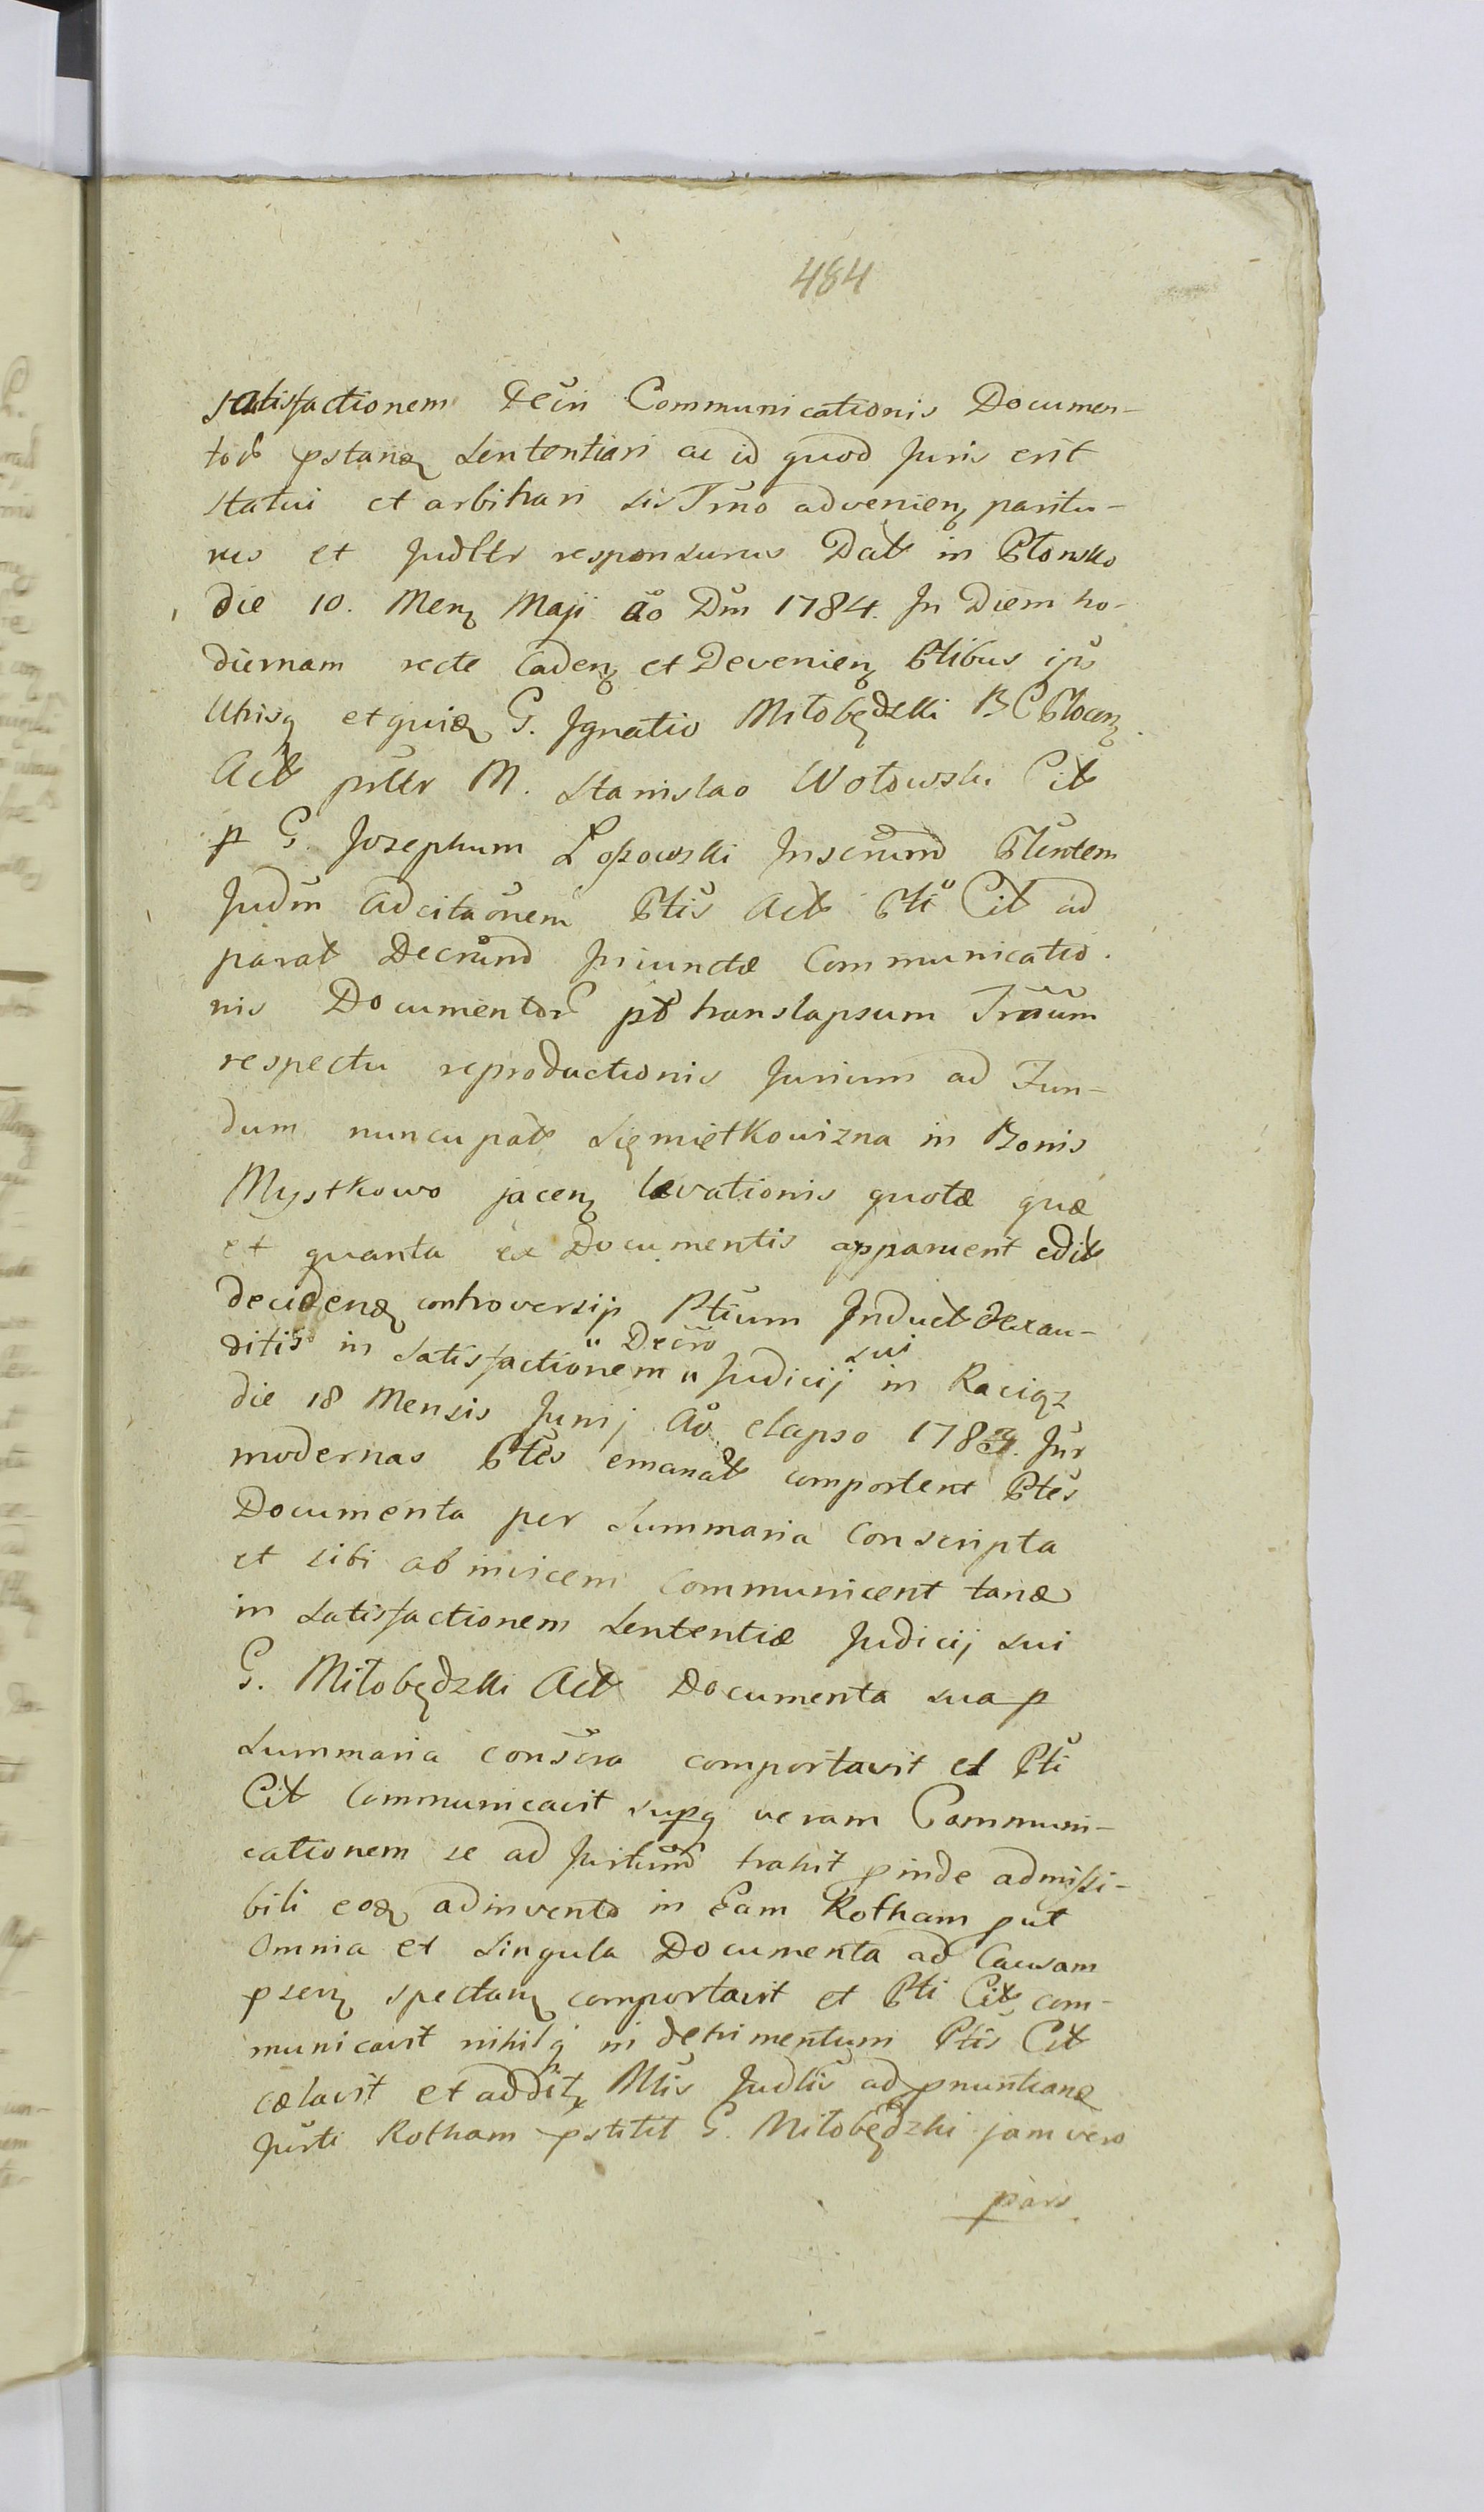 484
satisfactionem Decri Communicationis Documen-
tor pstanq sententiari ac id quod Juris erit
statui et arbitrari sis Trno advenienq paritu-
rus et Judltr responsurus Dat in Płonsko
die 10. Menq Maji ao Dni 1784. In Diem ho-
diernam recte Cadenq et Devenienq Ptibus ips
Utrisq et quidq G. Ignatio Miłobędzki B C Płocenq
Act psltr M. Stanislao Wołowski Cit
p G. Josephum Łopowski Inscrund Pltentem
Judm ad citaonem Ptis Act Pti Cit ad
parat Decrund Iniunctæ Communicatio-
nis Documentor pt translapsum Trnum
respectu reproductionis Jurium ad Fun-
dum nuncupat Sięmiętkowizna in Bonis
Mystkowo jacenq levationis quotæ quæ
et quanta ex Documentis apparuerit edit
decidenq controversijs Ptium Induct et exau-
ditis in satisfactionem " Decro " Judicij sui in Raciąz
die 18 Mensis Junij Ao elapso 1783. Int
modernas Ptes emanat comportent Ptes
Documenta per Summaria Conscripta
et sibi ab invicem communicent tanq
in satisfactionem Sententiæ Judicij sui
G. Miłobędzki Act Documenta sua p
Summaria conscra comportavit et Pti
Cit Communicavit supq veram Communi-
cationem se ad Jurtund trahit pinde admissi-
bili eoq adinvento in Eam Rotham put
Omnia et Singula Documenta ad Causam
psenq spectanq comportavit et Pti Cit com-
municavit nihilq in detrimentum Ptis Cit
cælavit et addit Mtis Judlis ad pnuntianq
Jurti Rotham pstitit G. Miłobędzki jam vero
pars